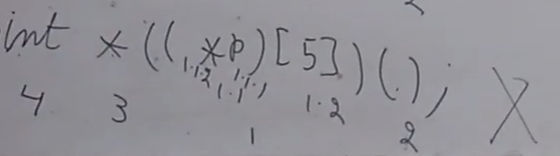 int * ((*p)[5])(); X
1.1.2 1.1.1
4 3 1.1 1.2
1 2